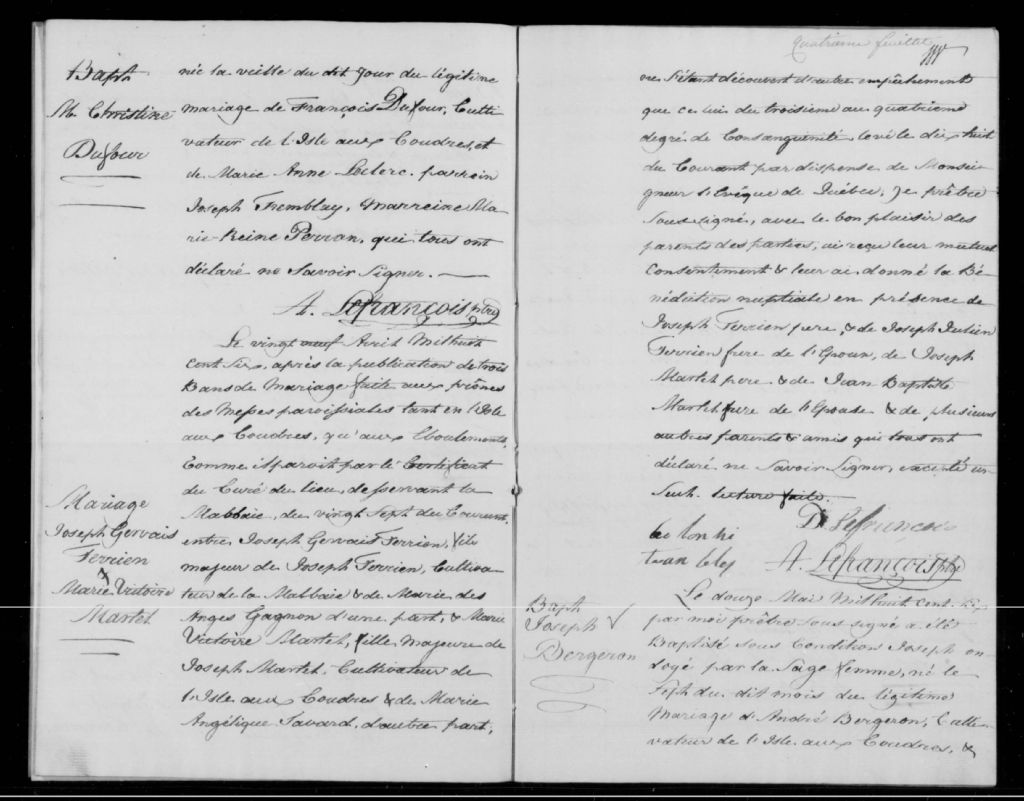 Bapt
M. Christine
Dufour
née la veille du dit jour du légitime
mariage de François Dufour, Culti
vateur de l'Isle aux Coudres, et
de Marie Anne Leclerc. parrein
Joseph Tremblay, Marreine Ma
rie-Reine Perron, qui tous ont
déclaré ne Savoir Signer.
A. Lefrançois ptre
Le vingt neuf Avril Mil huit
cent Six, après la publication de trois
Bans de Mariage faite aux prônes
des Messes paroissiales tant en l'Isle
aux Coudres, qu'aux Eboulements,
Comme il paroit par le Certificat
du Curé du lieu, desservant la
Malbaie, du vingt Sept du Courant,
entre Joseph Gervais Terrien, fils
majeur de Joseph Terrien, Cultiva
teur de la Malbaie & de Marie des
Anges Gagnon d'une part, & Marie
Victoire Martel, fille, majeure de
Joseph Martel, Cultivateur de
l'Isle aux Coudres & de Marie
Angélique Savard, d'autre part,
Mariage
Joseph Gervais
Terrien
&
Marie Victoire
Martel
Quatrieme feuillet
ne s'étant découvert d'autre empêchement
que celui du troisieme au quatrieme
degré de Consanguinité levé le dix huit
du Courant par dispense de Monsei
gneur l'Evêque de Québec, Je prêtre
Soussigné, avec le bon plaisir des
parents des parties, ai reçu leur mutuel
Consentement & leur ai donné la Bé
nédiction nuptiale en présence de
Joseph Terrien pere, & de Joseph Julien
Terrien frere de l'Epoux, de Joseph
Martel pere & de Jean Baptiste
Martel frere de l'Epouse & de plusieurs
autres parents & amis qui tous ont
déclaré ne Savoir Signer, excepté un
Seul. lecture faite.
D. Lefrançois
tran bley
A. Lefrançois ptre
Bapt
Joseph
Bergeron
Le douze Mai Mil huit cent Six
par moi prêtre Sous signé a été
Baptisé sous Condition Joseph on
doyé par la Sage femme, né le
Sept du dit mois du légitime
Mariage d'André Bergeron, Culti
vateur de l'Isle aux Coudres, &